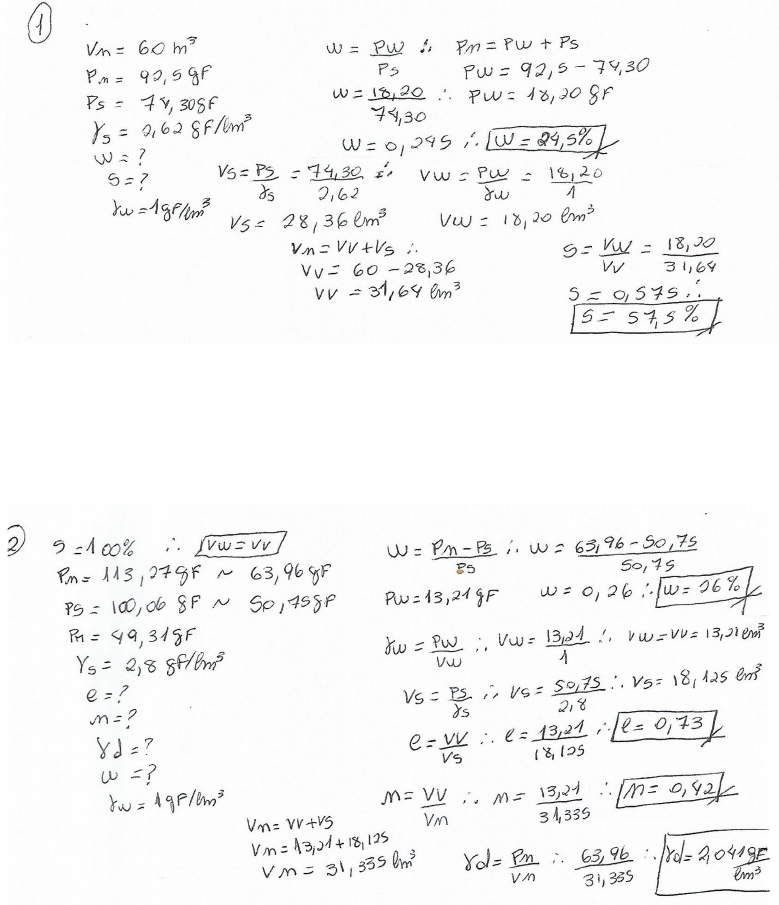 1
Vn = 60 m³
Pn = 92,5 gF
Ps = 74,30 gF
γs = 2,62 gF/cm³
w = ?
S = ?
γw = 1 gF/cm³
w = Pw/Ps ∴ Pn = Pw + Ps
Pw = 92,5 - 74,30
w = 18,20/74,30 ∴ Pw = 18,20 gF
w = 0,245 ∴ w = 24,5%
Vs = Ps/γs = 74,30/2,62 ∴ Vw = Pw/γw = 18,20/1
Vs = 28,36 cm³ Vw = 18,20 cm³
Vn = Vv + Vs ∴
Vv = 60 - 28,36
Vv = 31,64 cm³
S = Vw/Vv = 18,20/31,64
S = 0,575 ∴
S = 57,5%
2
S = 100% ∴ Vw = Vv
Pn = 113,27 gF ~ 63,96 gF
Ps = 100,06 gF ~ 50,75 gF
= 49,31 gF
γs = 2,8 gF/cm³
e = ?
n = ?
γd = ?
w = ?
γw = 1 gF/cm³
Vn = Vv + Vs
Vn = 13,21 + 18,125
Vn = 31,335 cm³
w = Pn - Ps/Ps ∴ w = 63,96 - 50,75/50,75
Pw = 13,21 gF w = 0,26 ∴ w = 26%
γw = Pw/Vw ∴ Vw = 13,21/1 ∴ Vw = Vv = 13,21 cm³
Vs = Ps/γs ∴ Vs = 50,75/2,8 ∴ Vs = 18,125 cm³
e = Vv/Vs ∴ e = 13,21/18,125 ∴ e = 0,73
n = Vv/Vn ∴ n = 13,21/31,335 ∴ n = 0,42
γd = Pn/Vn ∴ 63,96/31,335 ∴ γd = 2,041 gF/cm³